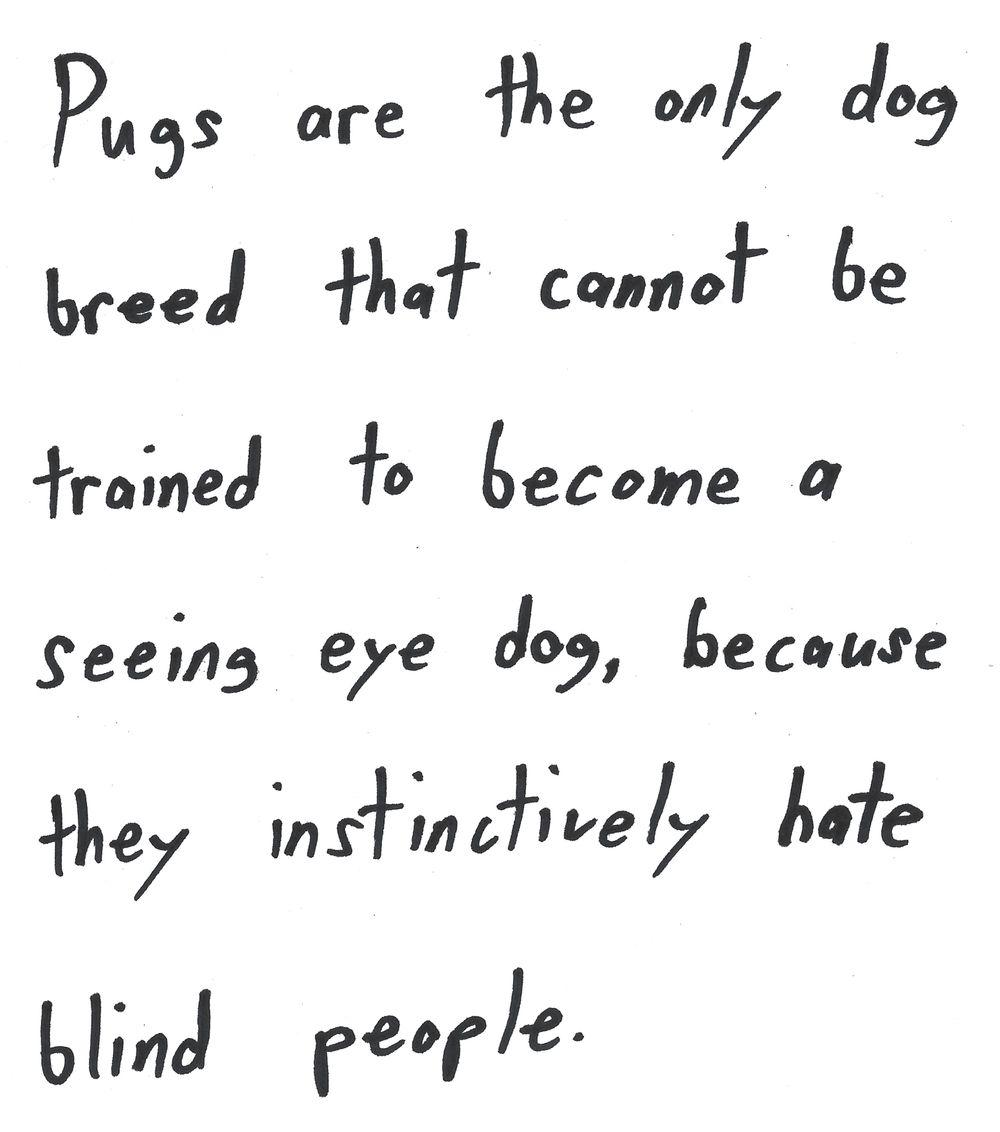 Pugs are the only dog
breed that cannot be
trained to become a
seeing eye dog, because
they instinctively hate
blind people.